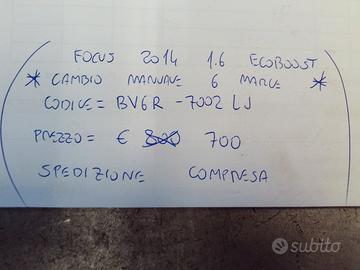 FOCUS 2014 1.6 ECOBOOST
* CAMBIO MANUALE 6 MARCE *
CODICE = BV6R - 7002 LJ
PREZZO = € 800 700
SPEDIZIONE COMPRESA
subito